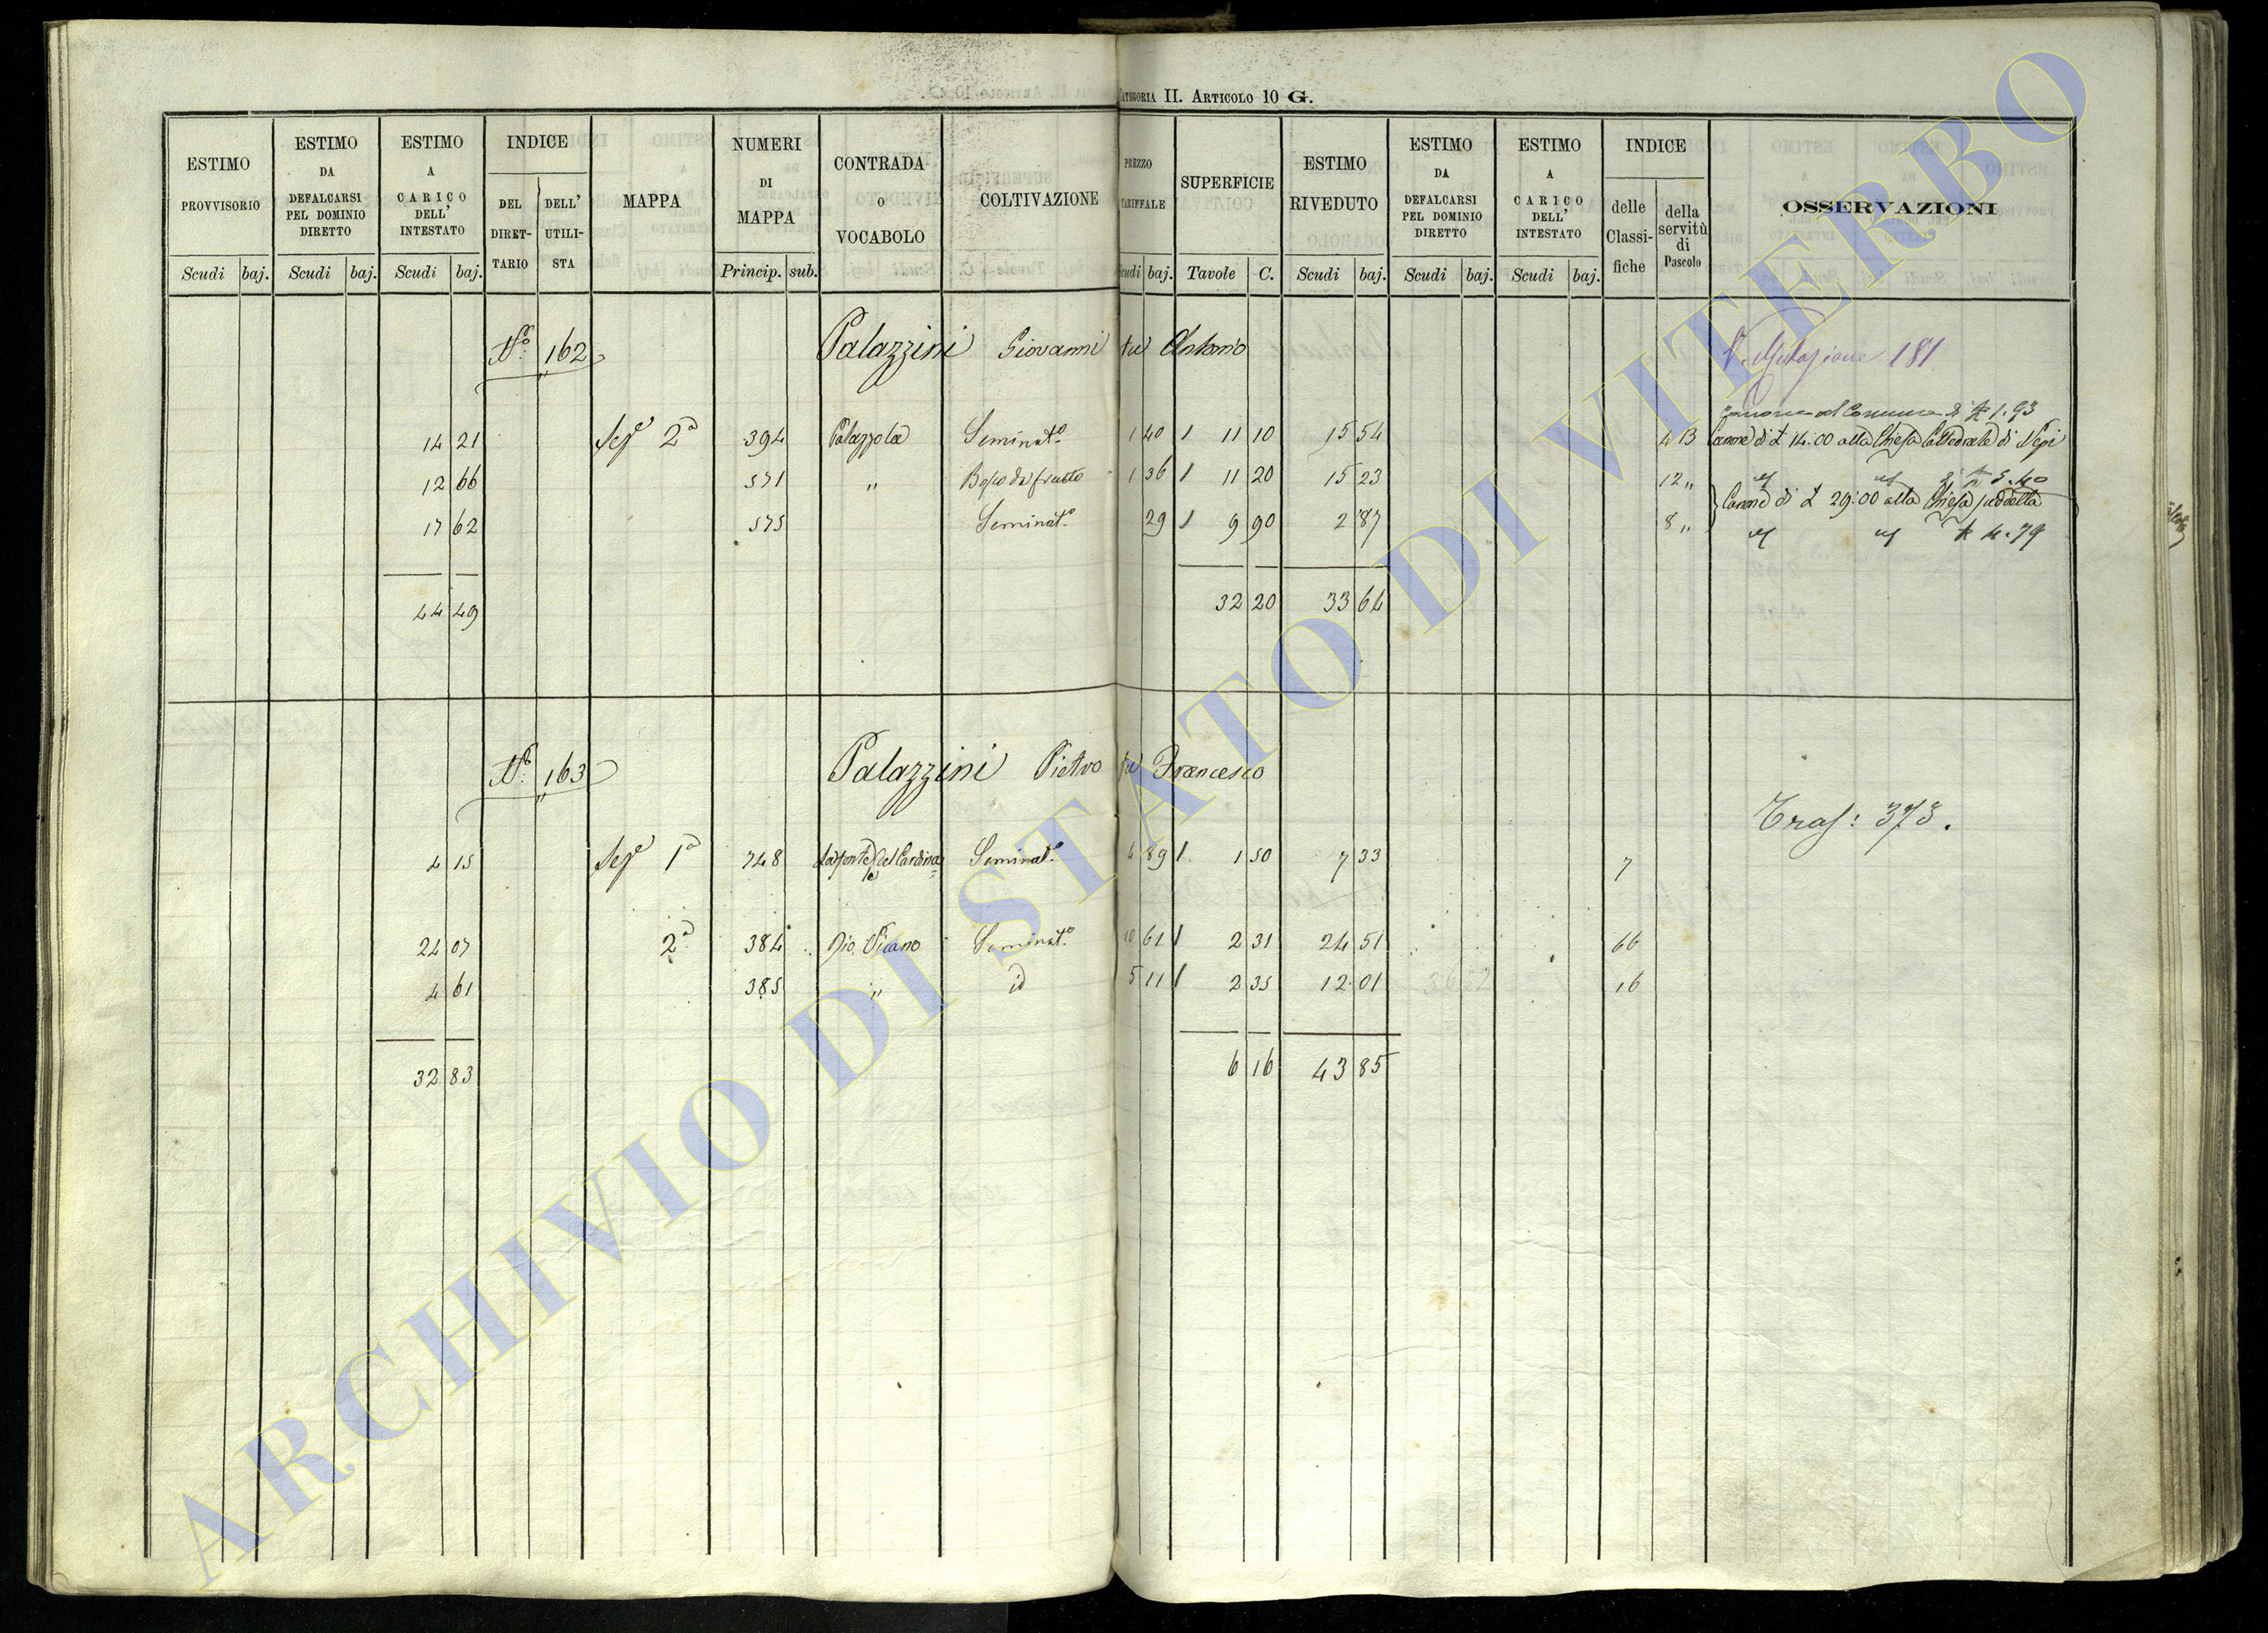 CATEGORIA II. ARTICOLO 10 G.
ESTIMO PROVVISORIO Scudi baj. ESTIMO DA DEFALCARSI PEL DOMINIO DIRETTO Scudi baj. ESTIMO A CARICO DELL' INTESTATO Scudi baj. INDICE DEL DIRET-TARIO DELL' UTILI-STA MAPPA NUMERI DI MAPPA Princip. sub. CONTRADA O VOCABOLO COLTIVAZIONE PREZZO TARIFFALE Scudi baj. SUPERFICIE Tavole C. ESTIMO RIVEDUTO Scudi baj. ESTIMO DA DEFALCARSI PEL DOMINIO DIRETTO Scudi baj. ESTIMO A CARICO DELL' INTESTATO Scudi baj. INDICE delle Classi-fiche della servitù di Pascolo OSSERVAZIONI
No. 162 Palazzini Giovanni fu Antonio V. Mutazione 181
Canone al Comune di 1.93
14 21 Seze 2a 394 Palazzola Seminato 1 40 11 10 15 54 4 B Canone di £ 14:00 alla Chiesa Cattedrale di Nepi
12 66 571 " Bosco da frutto 1 36 11 20 15 23 12 "
Canone di £ 29:00 alla Chiesa suddetta
17 62 575 Seminato 29 9 90 2 87 8 " 4.79
44 49 32 20 33 64
No. 163 Palazzini Pietro fu Francesco
Tras: 373.
4 15 Seze 1a 748 del Cardinale Seminato 4 89 1 50 7 33 7
24 07 2a 384 Pio Piano Seminato 10 61 2 31 24 51 66
4 61 385 " id 5 11 2 35 12 01 16
32 83 6 16 43 85
ARCHIVIO DI STATO DI VITERBO